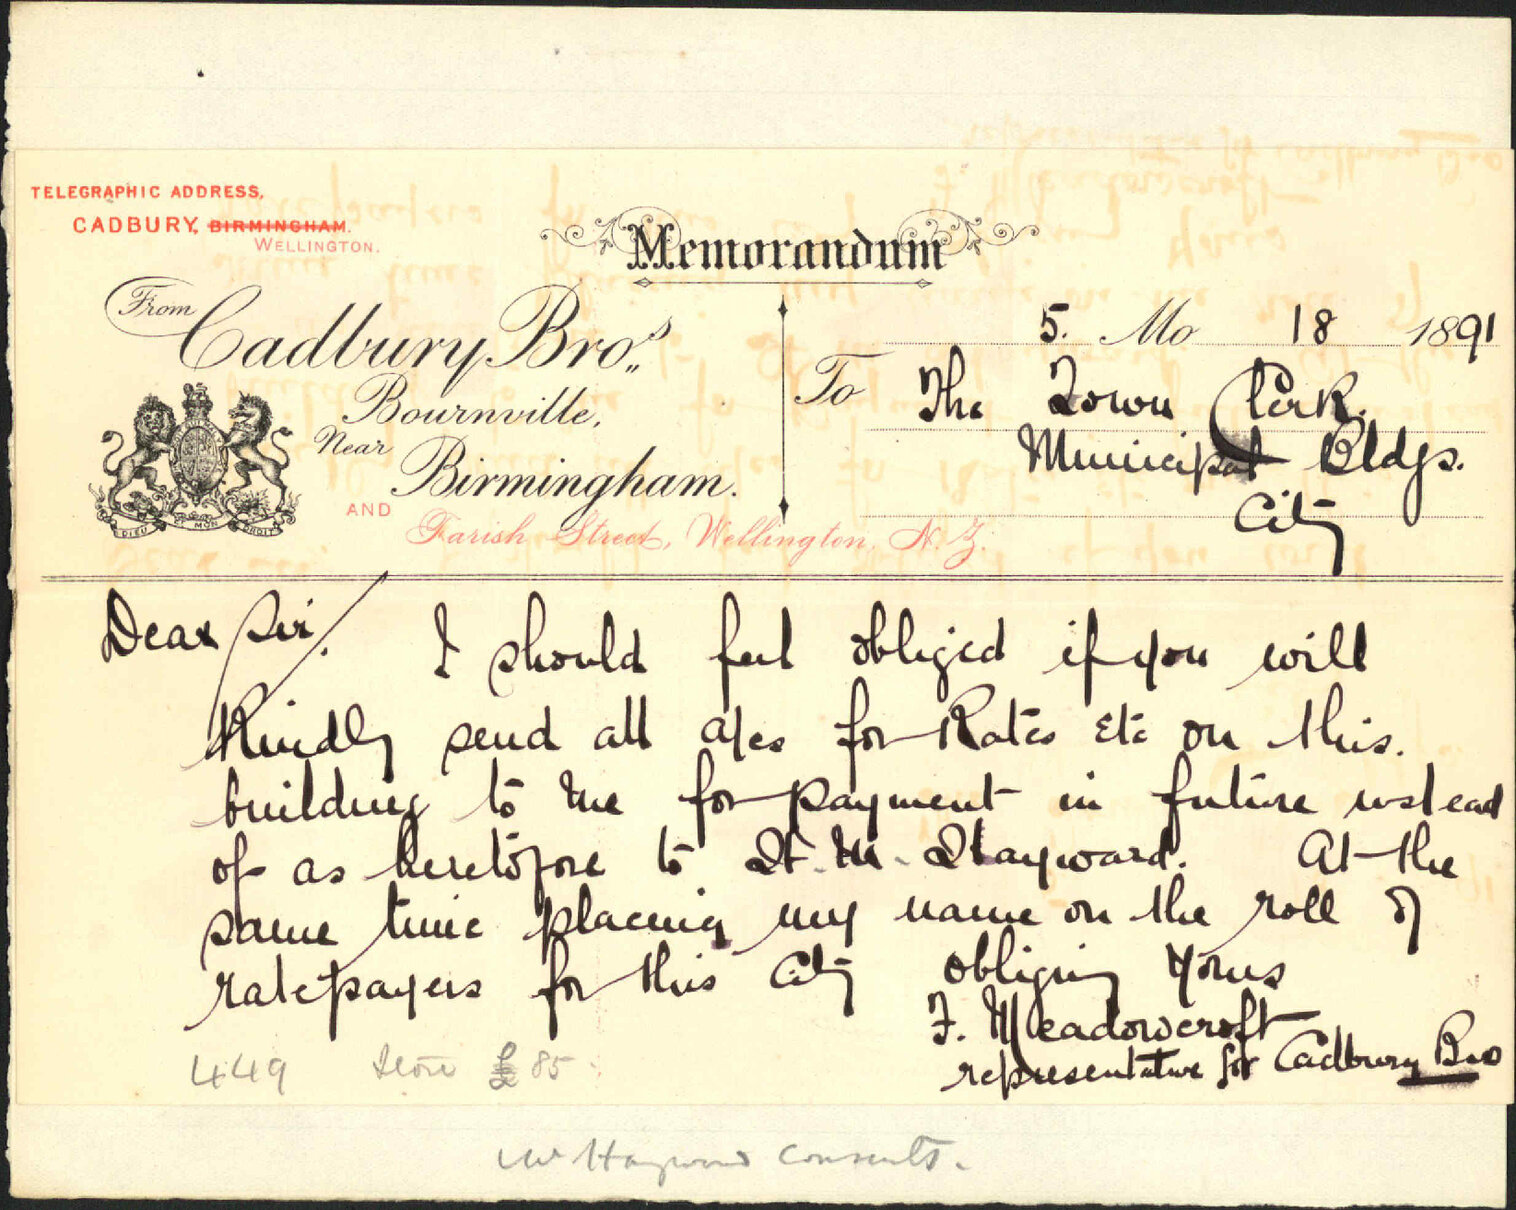 TELEGRAPHIC ADDRESS,
CADBURY, BIRMINGHAM.
WELLINGTON.
Memorandum
From Cadbury Bros.,
Bournville,
Near
Birmingham.
AND Farish Street, Wellington, N.Z.
DIEU ET MON DROIT
5. Mo 18 1891
To The Town Clerk.
Municipal Bldgs.
City
Dear Sir. I should feel obliged if you will
Kindly send all a/cs for Rates Etc on this.
building to me for payment in future instead
of as heretofore to Hayward. At the
same time placing my name on the roll of
ratepayers for this City obliging Yours
F. Meadowcroft
representative for Cadbury Bros
449 Store £85
Mr Hayward consents.